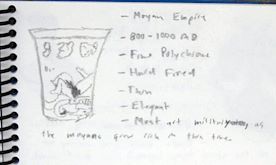 - Mayan Empire
- 800-1000 AD
- Fine Polychrome
- Hard Fired
- Thin
- Elegant
- Most art military as
the mayans grew rich in this time